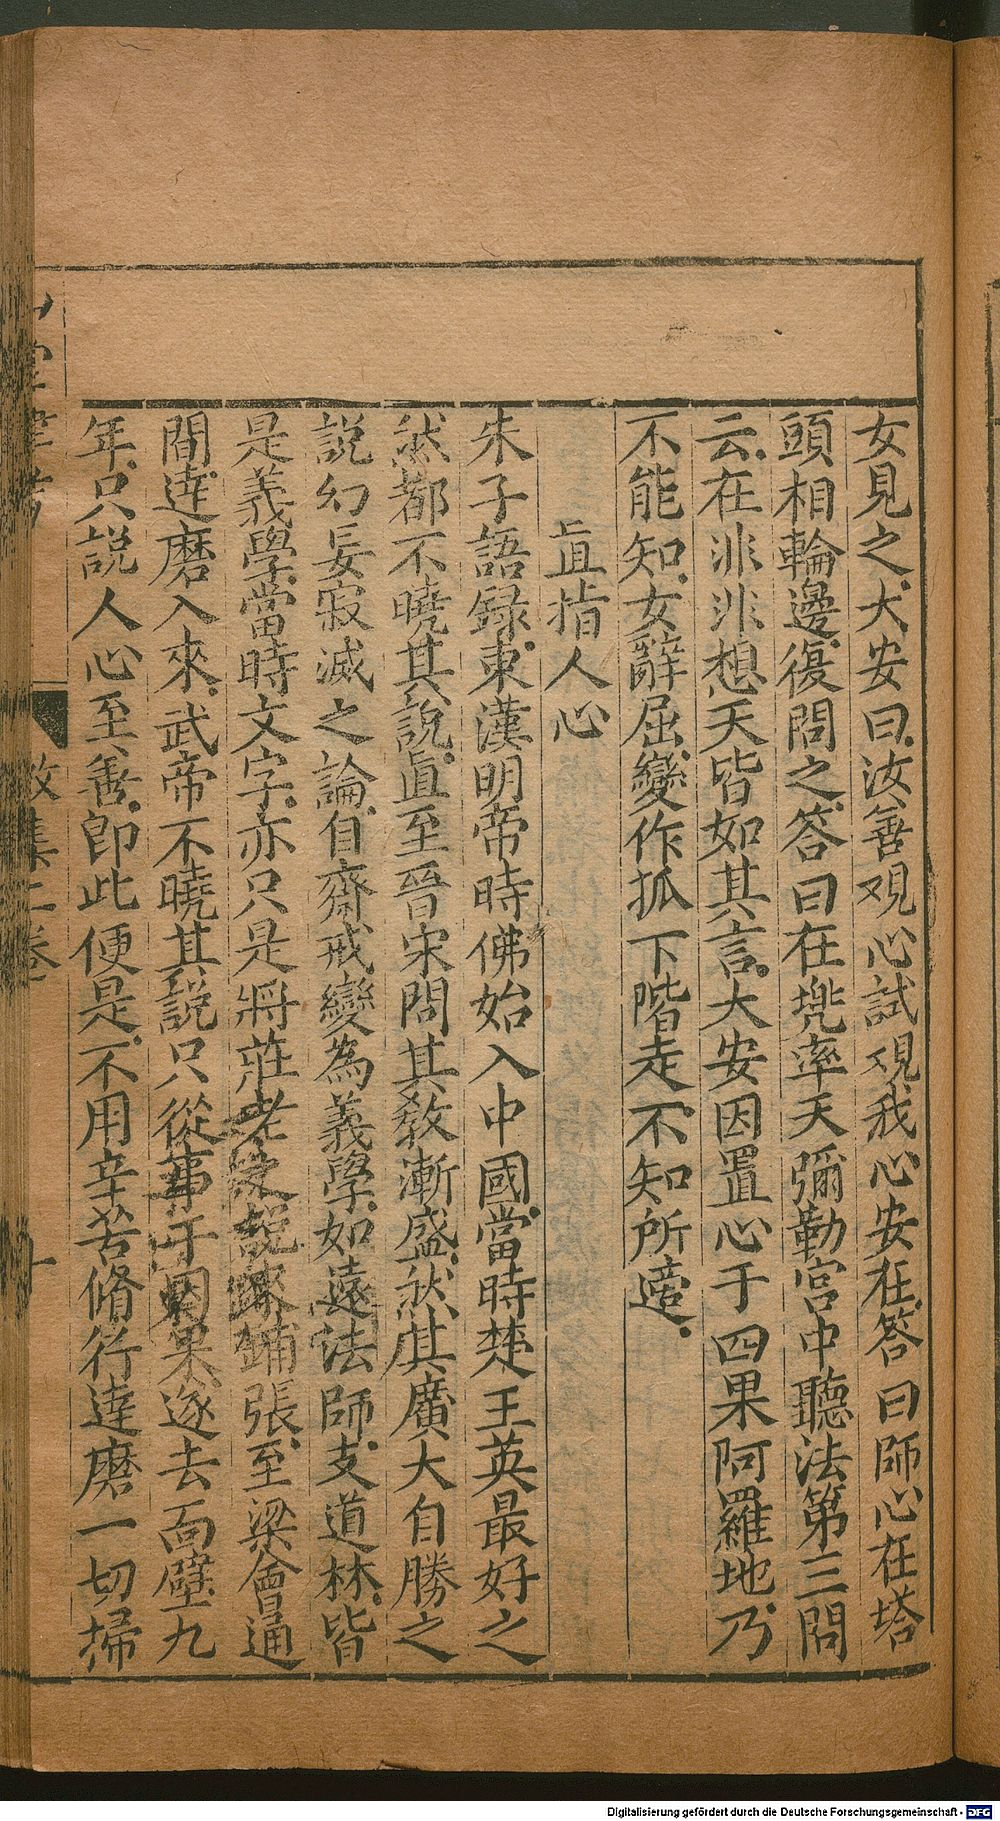 女見之大安曰汝善观心試观我心安在答曰師心在塔
頭相輪邊復問之答曰在兠率天彌勒宫中聽法第三問
云在非非想天皆如其言大安因置心于四果阿羅地乃
不能知女辭屈變作狐下階走不知所適
直指人心
朱子語録東漢明帝時佛始入中國當時楚王英最好之
然都不曉其說直至晉宋間其教漸盛然其廣大自勝之
說幻妄寂滅之論自齋戒變為義學如遠法師支道林皆
是義學當時文字亦只是將莊老之說來鋪張至梁會通
間達磨入來武帝不曉其說只從事于因果遂去面壁九
年只說人心至善即此便是不用辛苦脩行達磨一切掃
山堂肆考
集二卷
十
Digitalisierung gefördert durch die Deutsche Forschungsgemeinschaft - DFG